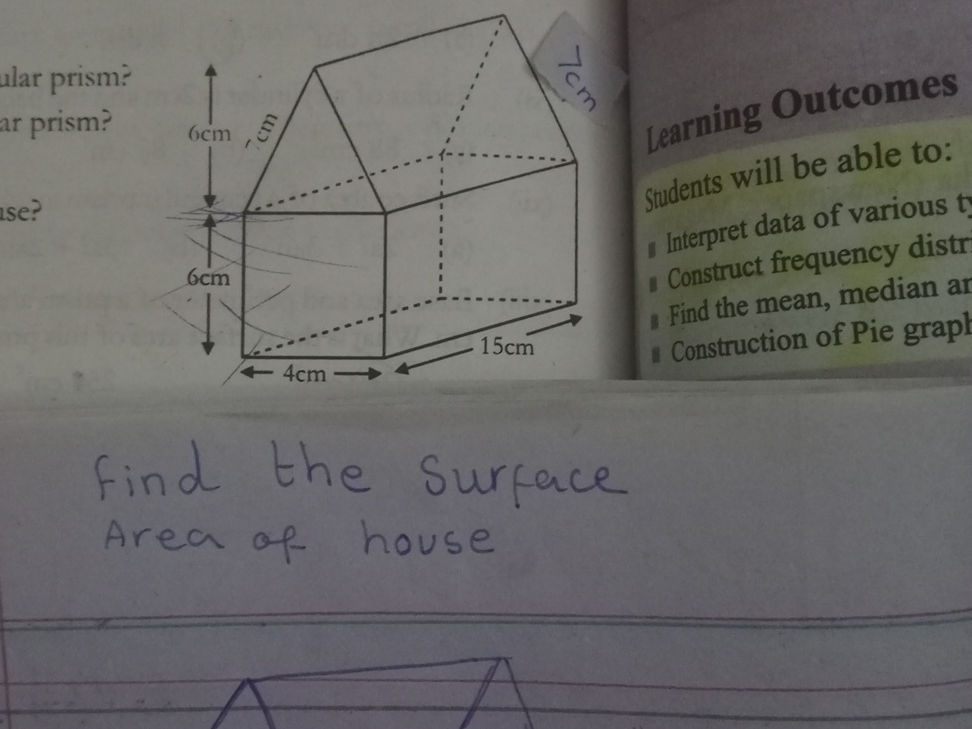 ular prism?
ar prism?
use?
6cm
7cm
7cm
6cm
4cm
15cm
Learning Outcomes
Students will be able to:
Interpret data of various ty
Construct frequency distri
Find the mean, median an
Construction of Pie graph
Find the Surface
Area of house